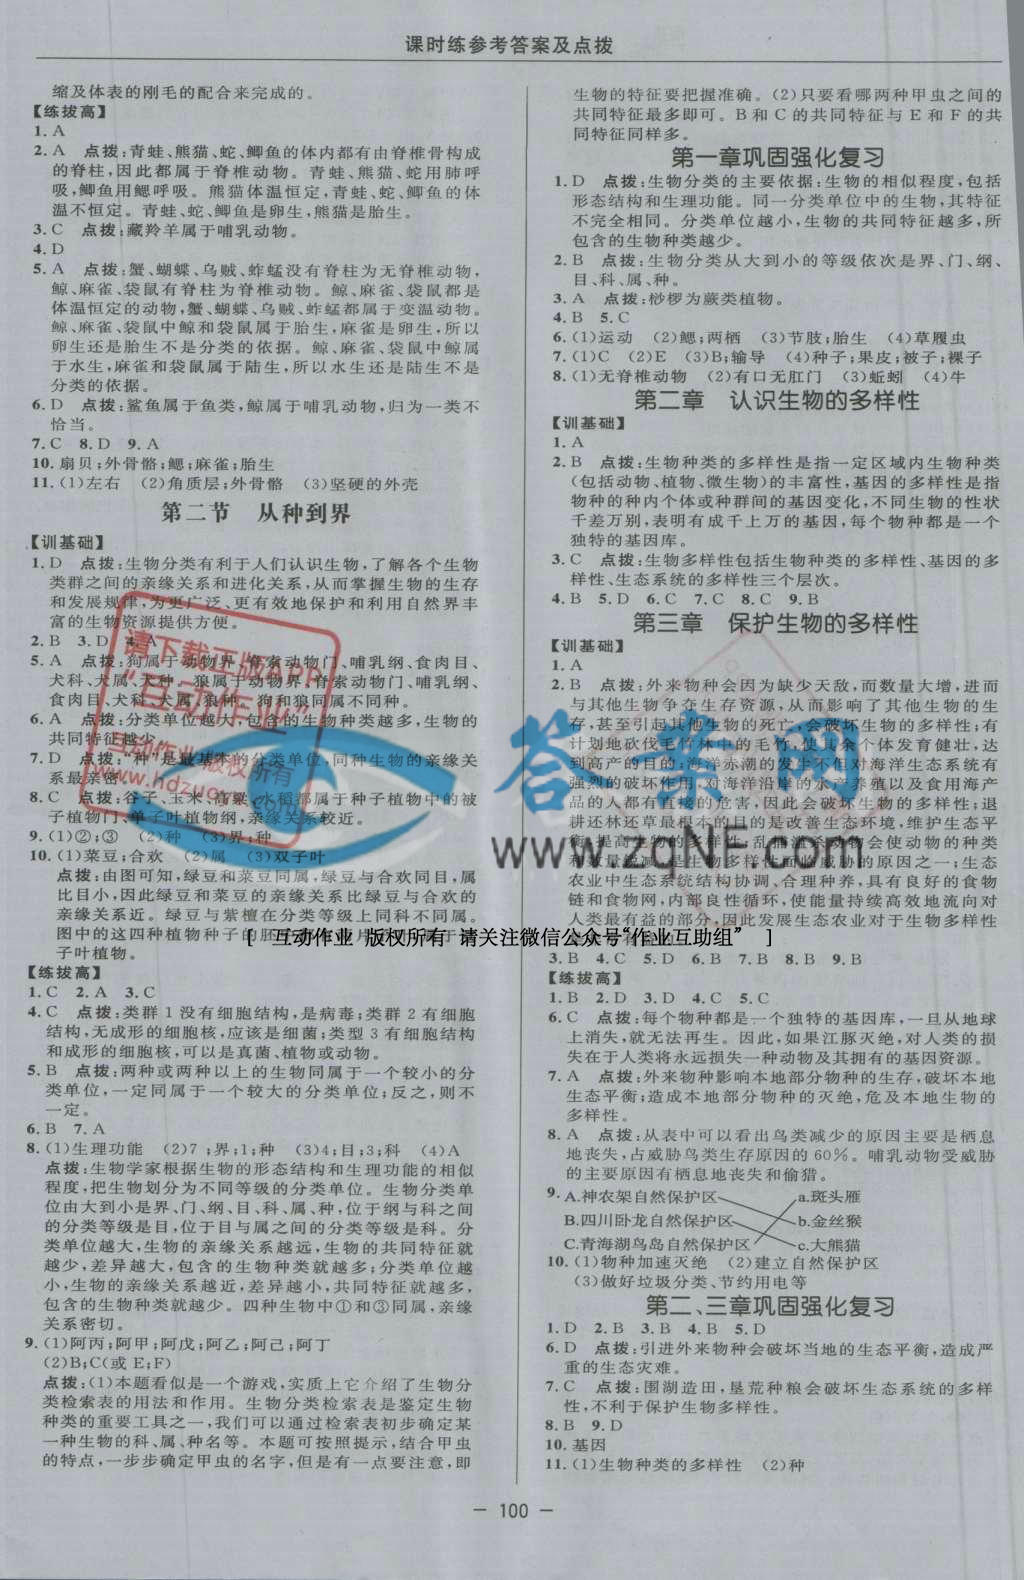 课时练参考答案及点拨
缩及体表的刚毛的配合来完成的。
【练拔高】
1. A
2. A 点拨:青蛙、熊猫、蛇、鲫鱼的体内都有由脊椎骨构成
的脊柱,因此都属于脊椎动物。青蛙、熊猫、蛇用肺呼
吸,鲫鱼用鳃呼吸。熊猫体温恒定,青蛙、蛇、鲫鱼的体
温不恒定。青蛙、蛇、鲫鱼是卵生,熊猫是胎生。
3. C 点拨:藏羚羊属于哺乳动物。
4. D
5. A 点拨:蟹、蝴蝶、乌贼、蚱蜢没有脊柱为无脊椎动物,
鲸、麻雀、袋鼠有脊柱为脊椎动物。鲸、麻雀、袋鼠都是
体温恒定的动物,蟹、蝴蝶、乌贼、蚱蜢都属于变温动物。
鲸、麻雀、袋鼠中鲸和袋鼠属于胎生,麻雀是卵生,所以
卵生还是胎生不是分类的依据。鲸、麻雀、袋鼠中鲸属
于水生,麻雀和袋鼠属于陆生,所以水生还是陆生不是
分类的依据。
6. D 点拨:鲨鱼属于鱼类,鲸属于哺乳动物,归为一类不
恰当。
7. C 8. D 9. A
10. 扇贝;外骨骼;鳃;麻雀;胎生
11. (1)左右 (2)角质层;外骨骼 (3)坚硬的外壳
第二节 从种到界
【训基础】
1. D 点拨:生物分类有利于人们认识生物,了解各个生物
类群之间的亲缘关系和进化关系,从而掌握生物的生存
和发展规律,为更广泛、更有效地保护和利用自然界丰
富的生物资源提供方便。
2. B 3. D 4. A
5. A 点拨:狗属于动物界、脊索动物门、哺乳纲、食肉目、
犬科、犬属、犬种。狼属于动物界、脊索动物门、哺乳纲、
食肉目、犬科、犬属、狼种。狗和狼同属不同种。
6. A 点拨:分类单位越大,包含的生物种类越多,生物的
共同特征越少。
7. D 点拨:“种”是最基本的分类单位,同种生物的亲缘关
系最亲密。
8. C 点拨:谷子、玉米、高粱、水稻都属于种子植物中的被
子植物门、单子叶植物纲,亲缘关系较近。
9. (1)②;③ (2)种 (3)界;种
10. (1)菜豆;合欢 (2)属 (3)双子叶
点拨:由图可知,绿豆和菜豆同属,绿豆与合欢同目,属
比目小,因此绿豆和菜豆的亲缘关系比绿豆与合欢的
亲缘关系近。绿豆与紫檀在分类等级上同科不同属。
图中的这四种植物种子的胚
子叶植物。
【练拔高】
1. C 2. A 3. C
4. C 点拨:类群1没有细胞结构,是病毒;类群2有细胞
结构,无成形的细胞核,应该是细菌;类型3有细胞结构
和成形的细胞核,可以是真菌、植物或动物。
5. B 点拨:两种或两种以上的生物同属于一个较小的分类
单位,一定同属于一个较大的分类单位;反之,则不
一定。
6. B 7. A
8. (1)生理功能 (2)7;界;1;种 (3)4;目;3;科 (4)A
点拨:生物学家根据生物的形态结构和生理功能的相似
程度,把生物划分为不同等级的分类单位。生物分类单
位由大到小是界、门、纲、目、科、属、种,位于纲与科之间
的分类等级是目,位于目与属之间的分类等级是科。分
类单位越大,生物的亲缘关系越远,生物的共同特征就
越少,差异越大,包含的生物种类就越多;分类单位越
小,生物的亲缘关系越近,差异越小,共同特征就越多,
包含的生物种类就越少。四种生物中①和③同属,亲缘
关系密切。
9. (1)阿丙;阿甲;阿戊;阿乙;阿己;阿丁
(2)B;C(或E;F)
点拨:(1)本题看似是一个游戏,实质上它介绍了生物分
类检索表的用法和作用。生物分类检索表是鉴定生物
种类的重要工具之一,我们可以通过检索表初步确定某
一种生物的科、属、种名等。本题可按照提示,结合甲虫
的特点,一步步确定甲虫的名字,但是有一点要注意,即
生物的特征要把握准确。(2)只要看哪两种甲虫之间的
共同特征最多即可。B和C的共同特征与E和F的共
同特征同样多。
第一章巩固强化复习
1. D 点拨:生物分类的主要依据:生物的相似程度,包括
形态结构和生理功能。同一分类单位中的生物,其特征
不完全相同。分类单位越小,生物的共同特征越多,所
包含的生物种类越少。
2. B 点拨:生物分类从大到小的等级依次是界、门、纲、
目、科、属、种。
3. A 点拨:桫椤为蕨类植物。
4. B 5. C
6. (1)运动 (2)鳃;两栖 (3)节肢;胎生 (4)草履虫
7. (1)C (2)E (3)B;输导 (4)种子;果皮;被子;裸子
8. (1)无脊椎动物 (2)有口无肛门 (3)蚯蚓 (4)牛
第二章 认识生物的多样性
【训基础】
1. A
2. B 点拨:生物种类的多样性是指一定区域内生物种类
(包括动物、植物、微生物)的丰富性,基因的多样性是指
物种的种内个体或种群间的基因变化,不同生物的性状
千差万别,表明有成千上万的基因,每个物种都是一个
独特的基因库。
3. C 点拨:生物多样性包括生物种类的多样性、基因的多
样性、生态系统的多样性三个层次。
4. B 5. D 6. C 7. C 8. C 9. B
第三章 保护生物的多样性
【训基础】
1. A
2. B 点拨:外来物种会因为缺少天敌,而数量大增,进而
与其他生物争夺生存资源,从而影响了其他生物的生
存,甚至引起其他生物的死亡,会破坏生物的多样性;有
计划地砍伐毛竹林中的毛竹,使其余个体发育健壮,达
到高产的目的;海洋赤潮的发生不但对海洋生态系统有
强烈的破坏作用,对海洋沿岸的水产养殖以及食用海产
品的人都有直接的危害,因此会破坏生物的多样性;退
耕还林还草最根本的目的是改善生态环境,维护生态平
衡,提高生物的多样性;乱捕滥杀动物会使动物的种类
和数量锐减,是生物多样性面临威胁的原因之一;生态
农业中生态系统结构协调,合理种养,具有良好的食物
链和食物网,内部良性循环,使能量持续高效地流向对
人类最有益的部分,因此发展生态农业对于生物多样性
[ 互动作业 版权所有 请关注微信公众号“作业互助组” ]
3. B 4. C 5. D 6. B 7. D 8. B 9. B
【练拔高】
1. B 2. D 3. D 4. C 5. C
6. C 点拨:每个物种都是一个独特的基因库,一旦从地球
上消失,就无法再生。因此,如果江豚灭绝,对人类的损
失在于人类将永远损失一种动物及其拥有的基因资源。
7. A 点拨:外来物种影响本地部分物种的生存,破坏本地
生态平衡;造成本地部分物种的灭绝,危及本地生物的
多样性。
8. A 点拨:从表中可以看出鸟类减少的原因主要是栖息
地丧失,占威胁鸟类生存原因的60%。哺乳动物受威胁
的主要原因有栖息地丧失和偷猎。
9. A.神农架自然保护区 a.斑头雁
B.四川卧龙自然保护区 b.金丝猴
C.青海湖鸟岛自然保护区 c.大熊猫
10. (1)物种加速灭绝 (2)建立自然保护区
(3)做好垃圾分类、节约用电等
第二、三章巩固强化复习
1. D 2. B 3. B 4. B 5. D
6. D 点拨:引进外来物种会破坏当地的生态平衡,造成严
重的生态灾难。
7. C 点拨:围湖造田,垦荒种粮会破坏生态系统的多样
性,不利于保护生物多样性。
8. B 9. D
10. 基因
11. (1)生物种类的多样性 (2)种
— 100 —
请下载正版APP
“互动作业”
互动作业 版权所有
www.hdzuoye.com
答案网
www.1010jiajiao.com